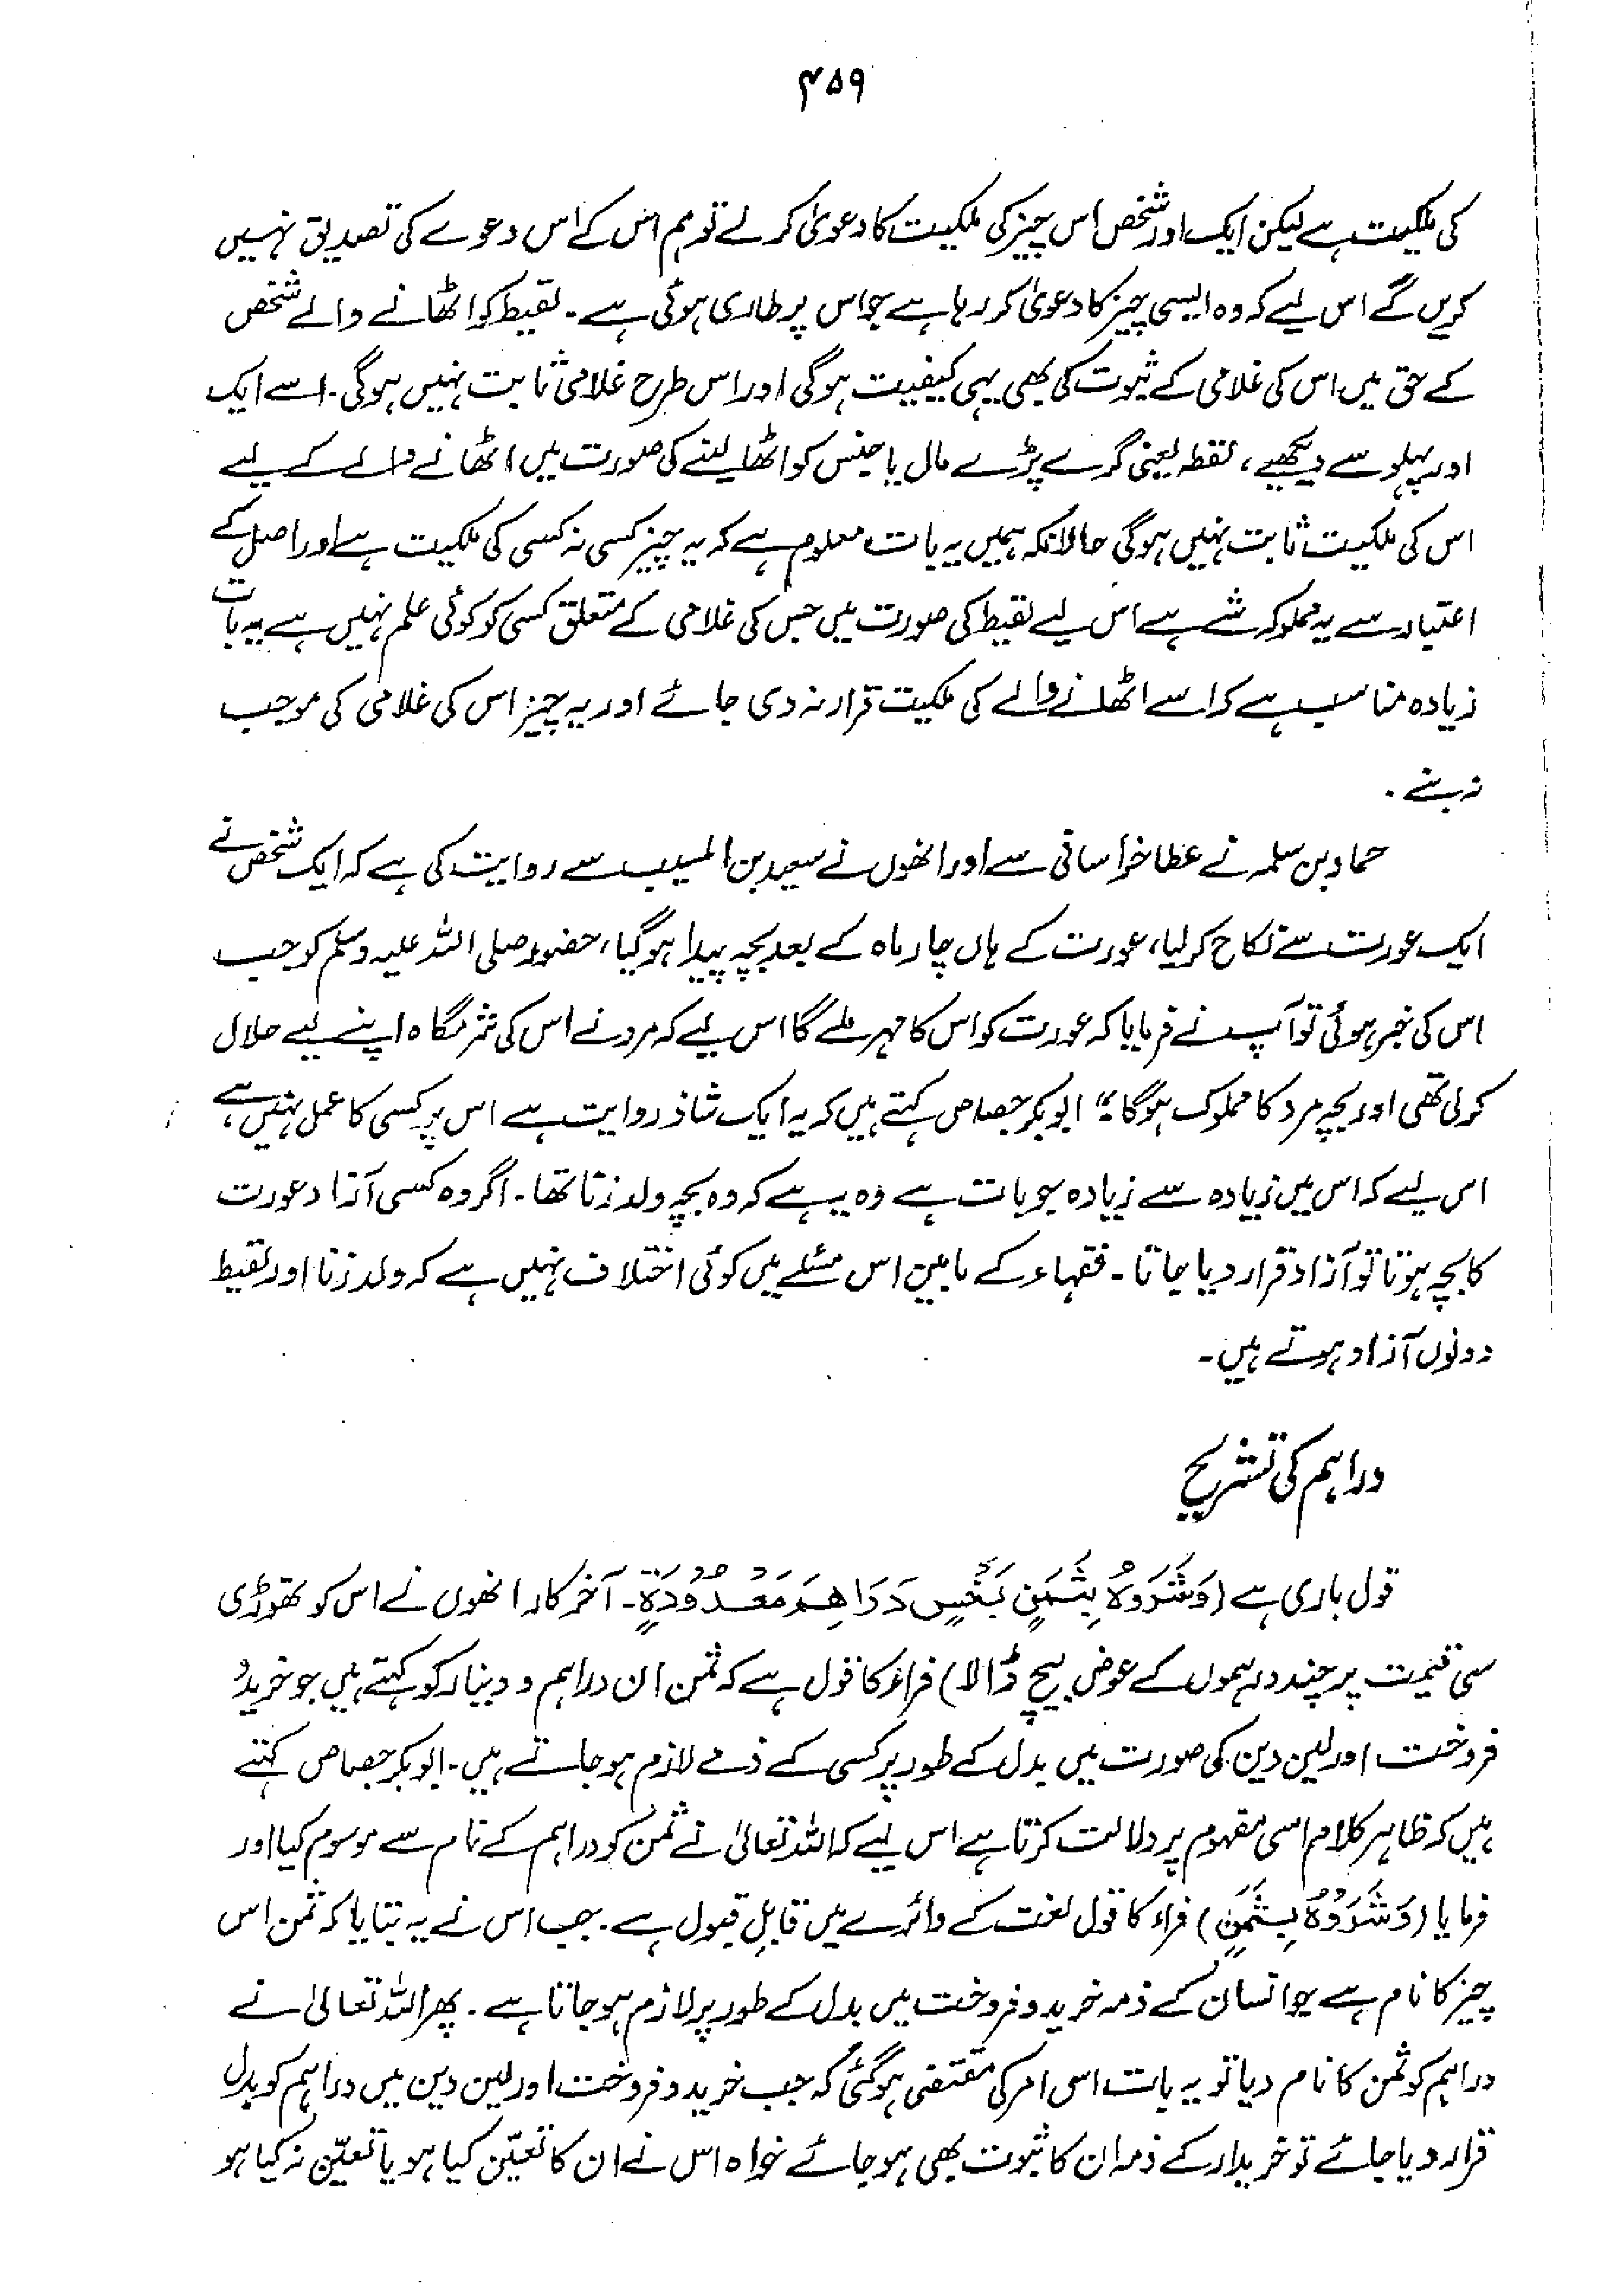 ۴۵۹
کی ملکیت ہے لیکن ایک اور شخص اس چیز کی ملکیت کا دعویٰ کر لے تو ہم اس کے اس دعوے کی تصدیق نہیں
کریں گے اس لیے کہ وہ ایسی چیز کا دعویٰ کر رہا ہے جو اس پر طاری ہوئی ہے۔ لقیط کو اٹھانے والے شخص
کے حق میں اس کی غلامی کے ثبوت کی بھی یہی کیفیت ہوگی اور اس طرح غلامی ثابت نہیں ہوگی۔ اسے ایک
اور پہلو سے دیکھیے، لقطہ یعنی گرے پڑے مال یا جنس کو اٹھا لینے کی صورت میں اٹھانے والے کے لیے
اس کی ملکیت ثابت نہیں ہوگی حالانکہ ہمیں یہ بات معلوم ہے کہ یہ چیز کسی نہ کسی کی ملکیت ہے اور اصل کے
اعتبار سے یہ مملوکہ شے ہے اس لیے لقیط کی صورت میں جس کی غلامی کے متعلق کسی کو کوئی علم نہیں ہے یہ بات
زیادہ مناسب ہے کہ اسے اٹھانے والے کی ملکیت قرار نہ دی جائے اور یہ چیز اس کی غلامی کی موجب
نہ بنے۔
حماد بن سلمہ نے عطا خراسانی سے اور انھوں نے سعید بن المسیب سے روایت کی ہے کہ ایک شخص نے
ایک عورت سے نکاح کر لیا، عورت کے ہاں چار ماہ کے بعد بچہ پیدا ہوگیا، حضور صلی اللہ علیہ وسلم کو جب
اس کی خبر ہوئی تو آپ نے فرمایا کہ عورت کو اس کا مہر ملے گا اس لیے کہ مرد نے اس کی شرمگاہ اپنے لیے حلال
کر لی تھی اور بچہ مرد کا مملوک ہوگا۔" ابوبکر جصاص کہتے ہیں کہ یہ ایک شاذ روایت ہے اس پر کسی کا عمل نہیں ہے،
اس لیے کہ اس میں زیادہ سے زیادہ جو بات ہے وہ یہ ہے کہ وہ بچہ ولد زنا تھا۔ اگر وہ کسی آزاد عورت
کا بچہ ہوتا تو آزاد قرار دیا جاتا۔ فقہاء کے مابین اس مسئلے میں کوئی اختلاف نہیں ہے کہ ولد زنا اور لقیط
دونوں آزاد ہوتے ہیں۔
دراہم کی تشریح
قول باری ہے (وَشَرَوْهُ بِثَمَنٍ بَخْسٍ دَرَاهِمَ مَعْدُوْدَةٍ۔ آخر کار انھوں نے اس کو تھوڑی
سی قیمت پر چند درہموں کے عوض بیچ ڈالا) فراء کا قول ہے کہ ثمن ان دراہم و دینار کو کہتے ہیں جو خرید و
فروخت اور لین دین کی صورت میں بدل کے طور پر کسی کے ذمے لازم ہو جاتے ہیں۔ ابوبکر جصاص کہتے
ہیں کہ ظاہر کلام اسی مفہوم پر دلالت کرتا ہے اس لیے کہ اللہ تعالیٰ نے ثمن کو دراہم کے نام سے موسوم کیا اور
فرمایا (وَشَرَوْهُ بِثَمَنٍ) فراء کا قول لغت کے دائرے میں قابلِ قبول ہے۔ جب اس نے یہ بتایا کہ ثمن اس
چیز کا نام ہے جو انسان کے ذمہ خرید و فروخت میں بدل کے طور پر لازم ہو جاتا ہے۔ پھر اللہ تعالیٰ نے
دراہم کو ثمن کا نام دیا تو یہ بات اس امر کی مقتضی ہوگئی کہ جب خرید و فروخت اور لین دین میں دراہم کو بدل
قرار دیا جائے تو خریدار کے ذمہ ان کا ثبوت بھی ہو جائے خواہ اس نے ان کا تعیّن کیا ہو یا تعیّن نہ کیا ہو